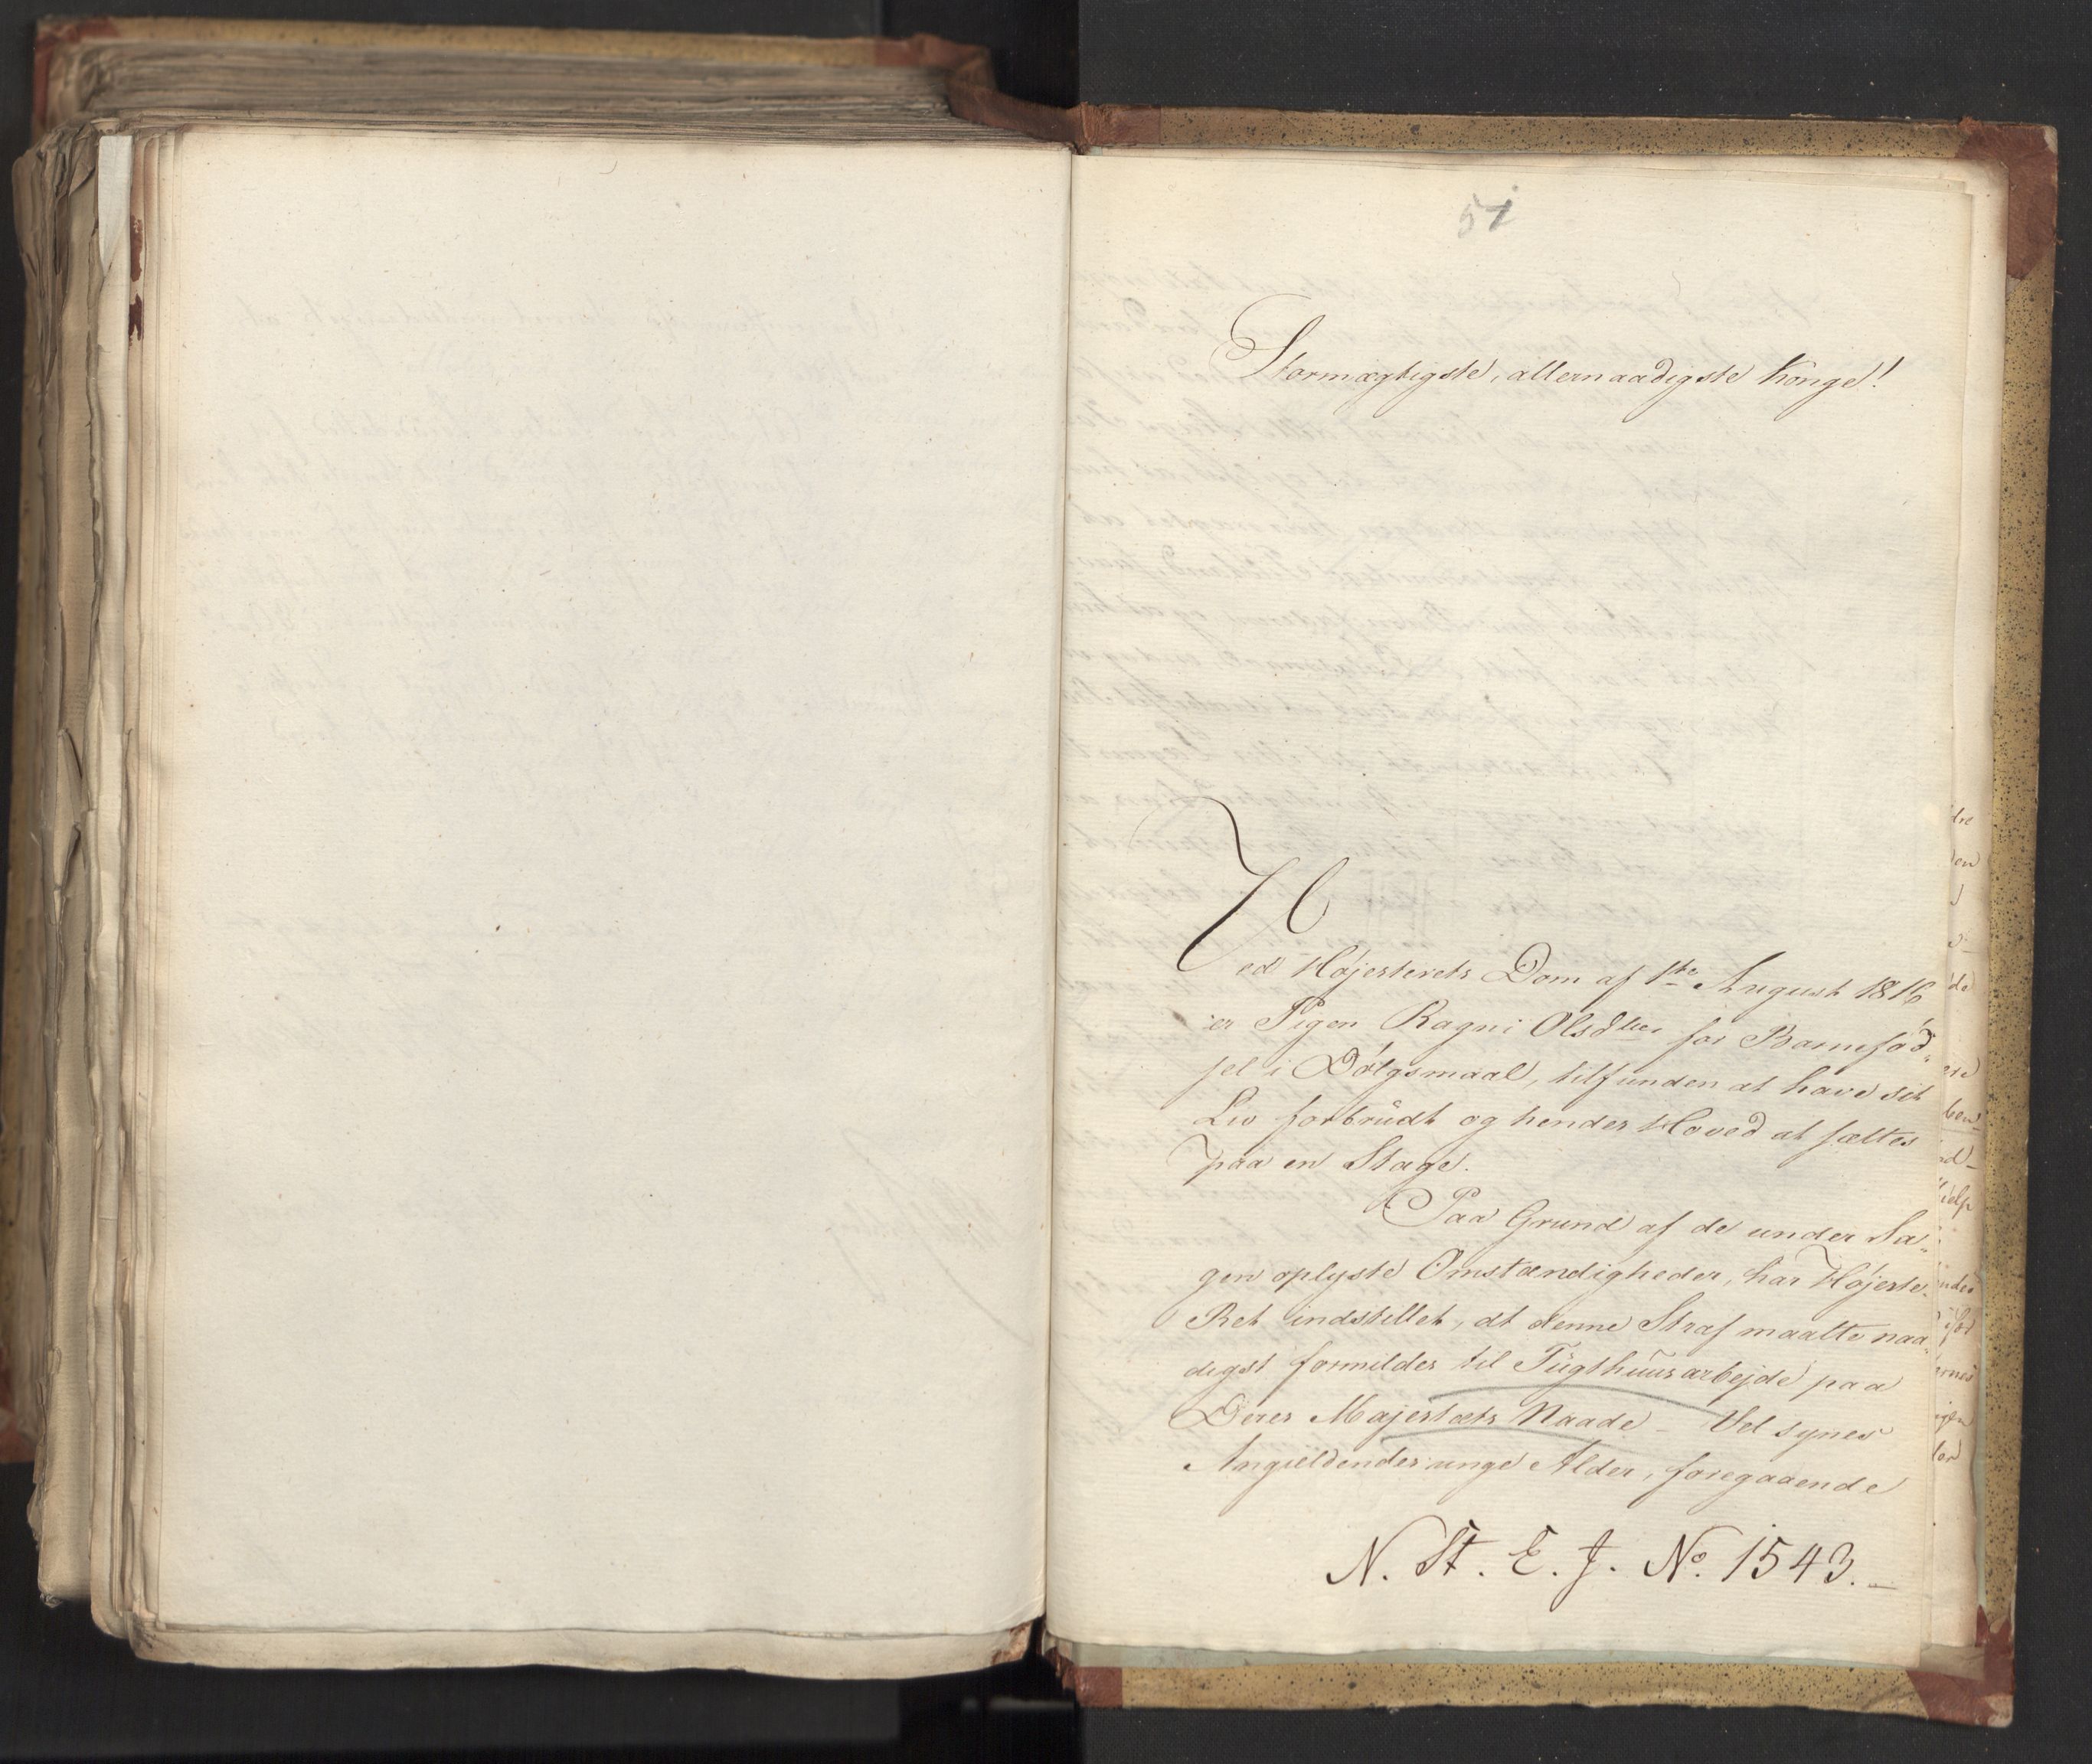 51
Stormægtigste, allernaadigste Konge!
Ved Højesterets Dom af 1ste August 1816
er Pigen Ragni Olsdtter for Barnefød„
sel i Dølgsmaal, tilfunden at have sit
Liv forbrudt og hendes Hoved at sættes
paa en Stage.
Paa Grund af de under Sa„
gen oplyste Omstændigheder, har Højeste„
Ret indstillet, at denne Straf maatte naa„
digst formildes til Tugthuusarbejde paa
Deres Majestæts Naade – Vel synes
Angieldendes unge Alder, foregaaende
N. St. E. J. No. 1543.–